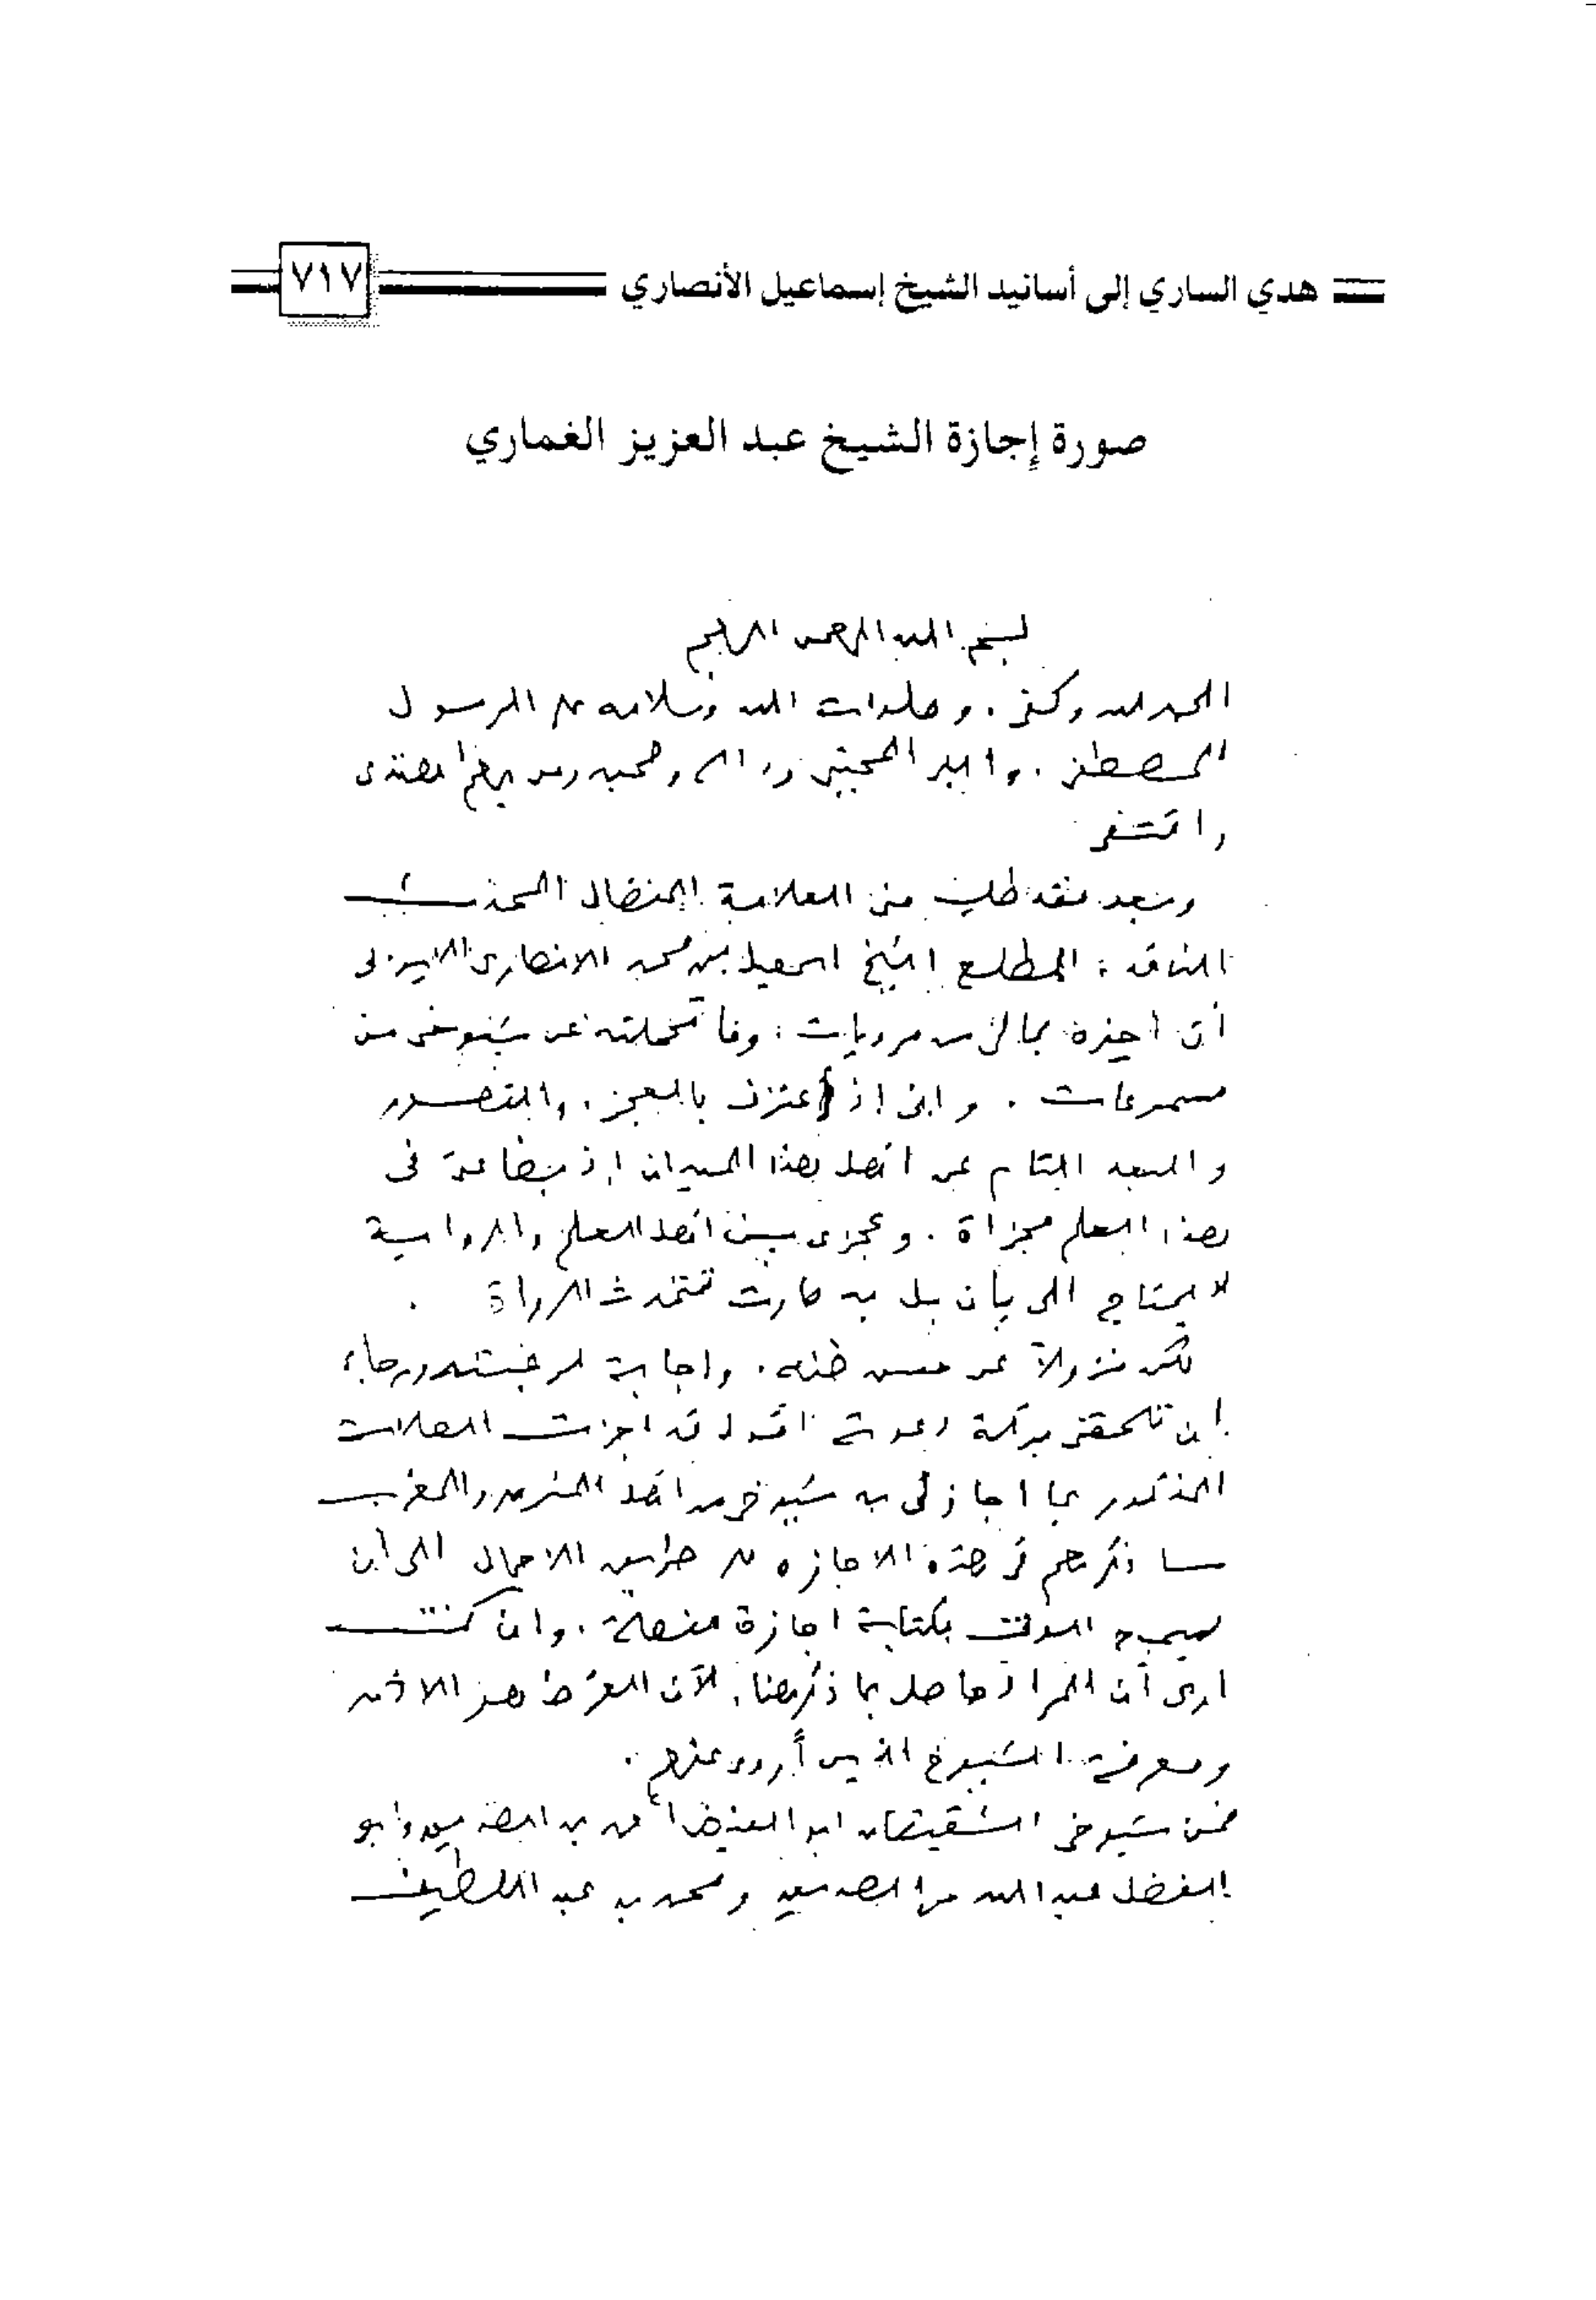 هدي الساري إلى أسانيد الشيخ إسماعيل الأنصاري
٧١٧
صورة إجازة الشيخ عبد العزيز الغماري
بسم الله الرحمن الرحيم
الحمد لله وكفى . وصلوات الله وسلامه على الرسول
المصطفى . و المجتبى و اله وصحبه ومن بهم اهتدى
واقتفى
وبعد فقد طلب منى العلامة المفضال المحدث
الناقد ، المطلع الشيخ اسمعيل بن محمد الانصارى
أن اجيزه بما لى من مرويات ، وما تحملته عن شيوخى من
مسموعات . وانى إذ أعترف بالعجز . والقصور
و البعد التام عن اهل هذا الميدان إذ بضاعتى فى
هذا العلم مجزاة . وعجزى بين اهل العلم والرواية
لا يحتاج الى بيان بل به صارت تتحدث الرواة .
لكن نزولا عن حسن ظنه . واجابة لرغبته ورجاء
ان تلحقنى بركة دعوته اقول قد اجزت العلامة
المذكور بما اجازنى به شيوخى من اهل المشرق والمغرب
مما ذكرهم فى هذه الاجازه على الاجمال الى أن
يسمح الوقت بكتابة اجازة مفصلة . وان كنت
ارى أن المراد حاصل بما ذكر هنا ، لأن الغرض هو الاذن
ومعرفة الشيوخ الذين أروى عنهم .
فمن شيوخى الشقيقان ابو الفيض احمد بن الصديق وابو
الفضل عبد الله بن الصديق ومحمد بن عبد اللطيف